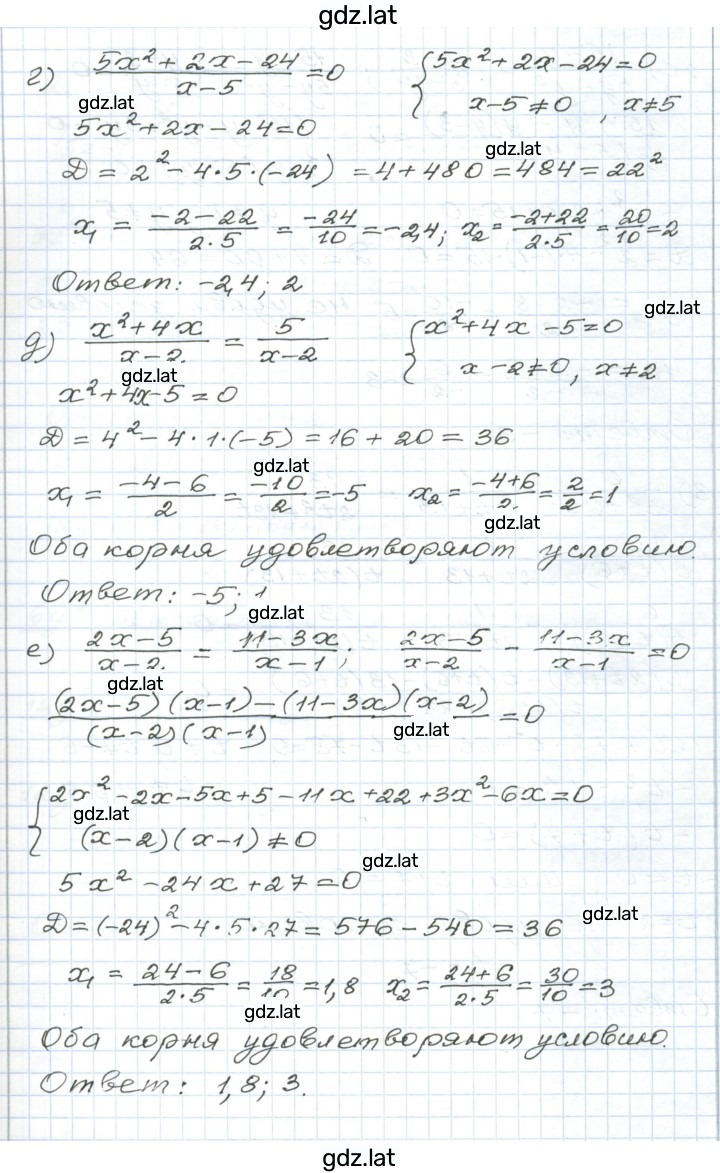 gdz.lat
г) (5x² + 2x - 24)/(x - 5) = 0 { 5x² + 2x - 24 = 0
gdz.lat x - 5 ≠ 0 , x ≠ 5
5x² + 2x - 24 = 0
gdz.lat
D = 2² - 4·5·(-24) = 4 + 480 = 484 = 22²
x₁ = (-2 - 22)/(2·5) = -24/10 = -2,4; x₂ = (-2+22)/(2·5) = 20/10 = 2
Ответ: -2,4; 2
gdz.lat
д) (x² + 4x)/(x - 2) = 5/(x - 2) { x² + 4x - 5 = 0
x - 2 ≠ 0, x ≠ 2
gdz.lat
x² + 4x - 5 = 0
D = 4² - 4·1·(-5) = 16 + 20 = 36
gdz.lat
x₁ = (-4 - 6)/2 = -10/2 = -5 x₂ = (-4+6)/2 = 2/2 = 1
gdz.lat
Оба корня удовлетворяют условию.
Ответ: -5; 1
gdz.lat
е) (2x - 5)/(x - 2) = (11 - 3x)/(x - 1); (2x - 5)/(x - 2) - (11 - 3x)/(x - 1) = 0
gdz.lat
((2x - 5)(x - 1) - (11 - 3x)(x - 2))/((x - 2)(x - 1)) = 0
gdz.lat
{ 2x² - 2x - 5x + 5 - 11x + 22 + 3x² - 6x = 0
gdz.lat
(x - 2)(x - 1) ≠ 0
gdz.lat
5x² - 24x + 27 = 0
gdz.lat
D = (-24)² - 4·5·27 = 576 - 540 = 36
x₁ = (24 - 6)/(2·5) = 18/10 = 1,8 x₂ = (24+6)/(2·5) = 30/10 = 3
gdz.lat
Оба корня удовлетворяют условию.
Ответ: 1,8; 3.
gdz.lat